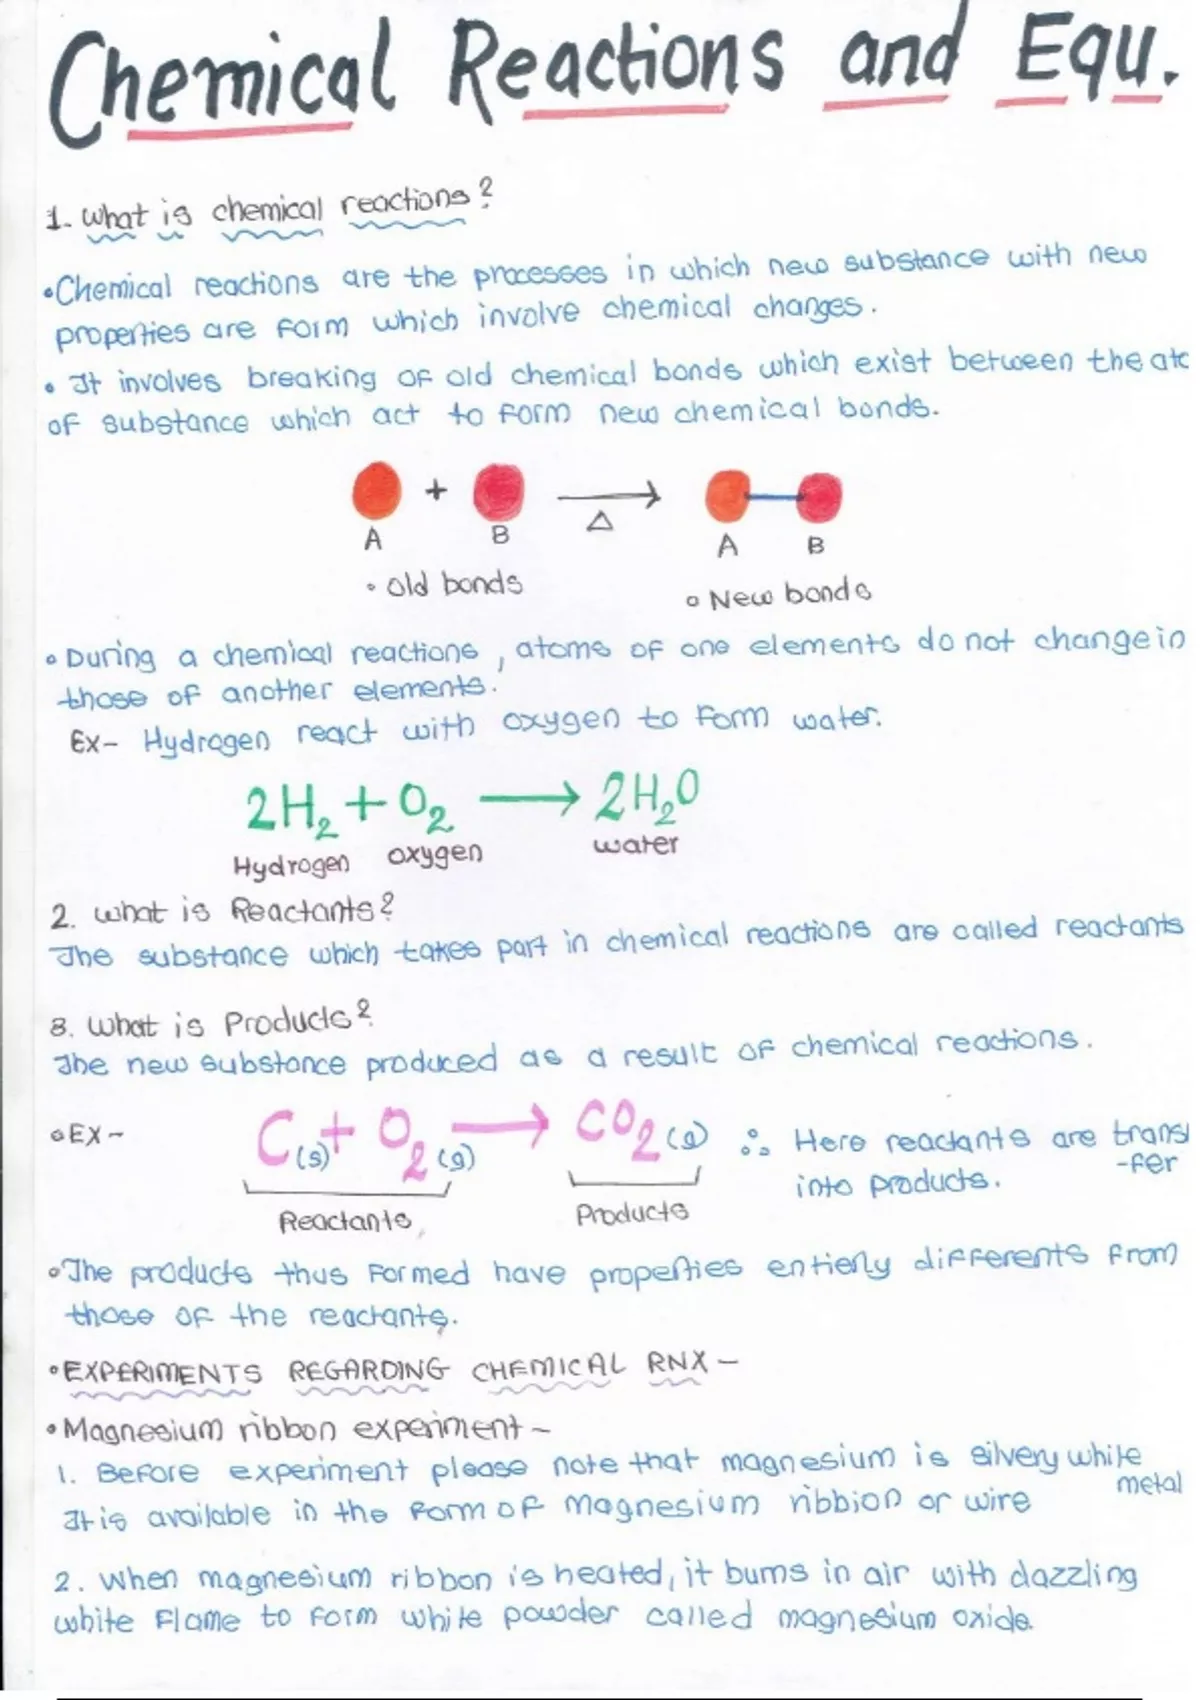 Chemical Reactions and Equ.
1. What is chemical reactions?
•Chemical reactions are the processes in which new substance with new
properties are form which involve chemical changes.
• It involves breaking of old chemical bonds which exist between the
of substance which act to form new chemical bonds.
A + B → A B
Δ
• Old bonds
• New bonds
• During a chemical reactions, atoms of one elements do not change in
those of another elements.
Ex- Hydrogen react with oxygen to form water.
2H₂ + O₂ → 2H₂O
Hydrogen oxygen water
2. What is Reactants?
The substance which takes part in chemical reactions are called reactants
3. What is Products?
The new substance produced as a result of chemical reactions.
• EX- C(s) + O₂(g) → CO₂(g) ∴ Here reactants are trans
-fer
into products.
Reactants Products
•The products thus formed have properties entierly differents from
those of the reactants.
•EXPERIMENTS REGARDING CHEMICAL RNX -
•Magnesium ribbon experiment -
1. Before experiment please note that magnesium is silvery white
metal
It is available in the form of Magnesium ribbion or wire
2. When magnesium ribbon is heated, it burns in air with dazzling
white flame to form white powder called magnesium oxide.